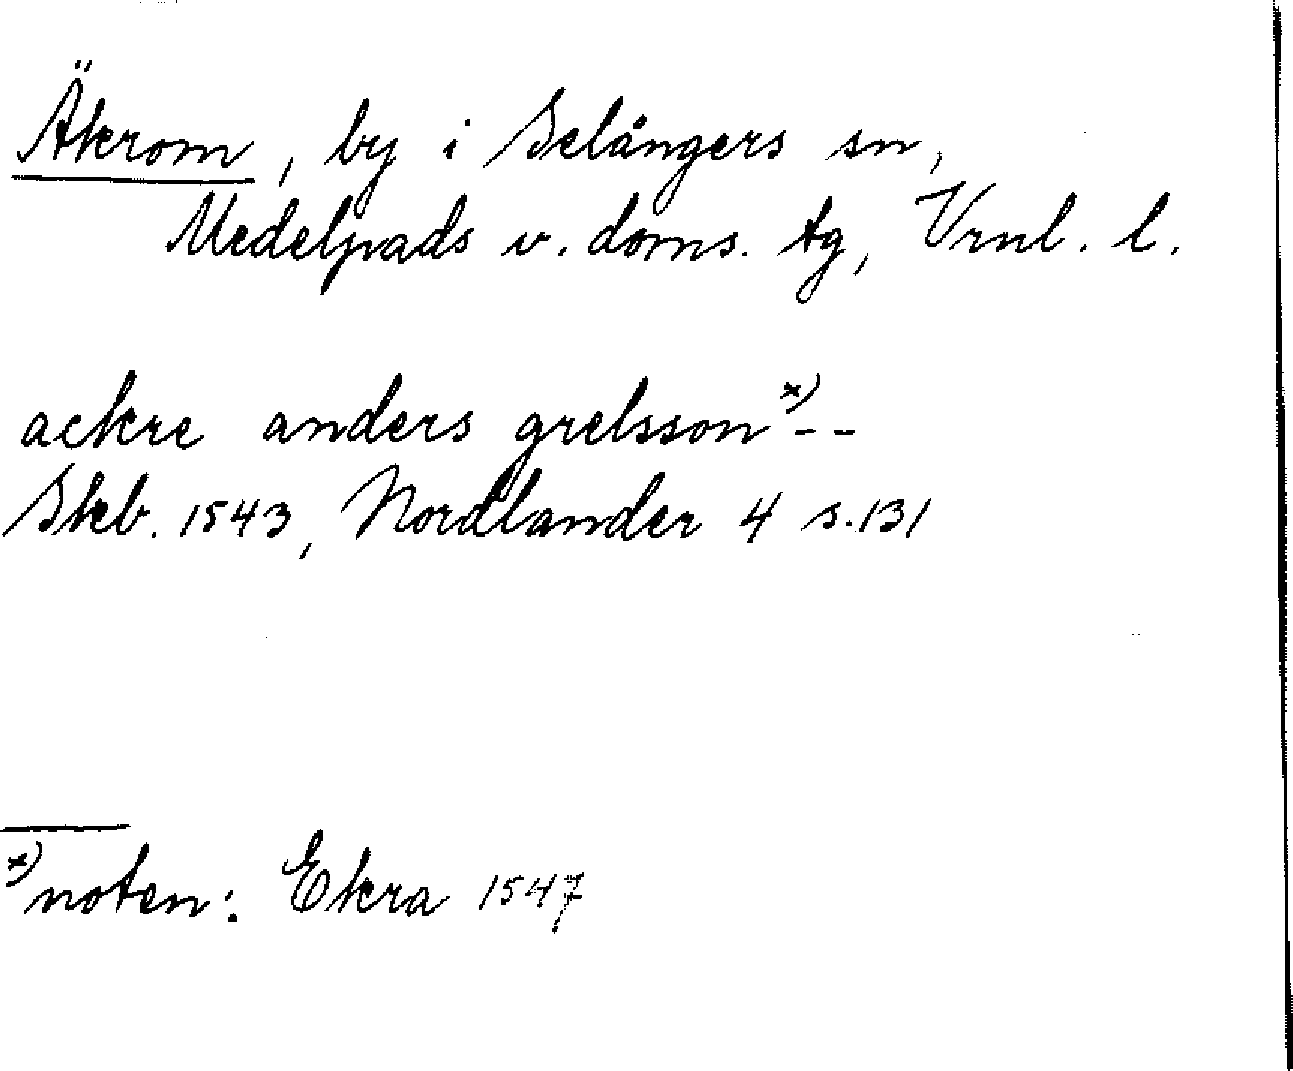 Äkrom, by i Selångers sn,
Medelpads v. doms. tg, Vrnl. l.
ackre anders grelsson x) - -
Skb. 1543, Nordlander 4 s. 131
x) noten: Ekra 1547